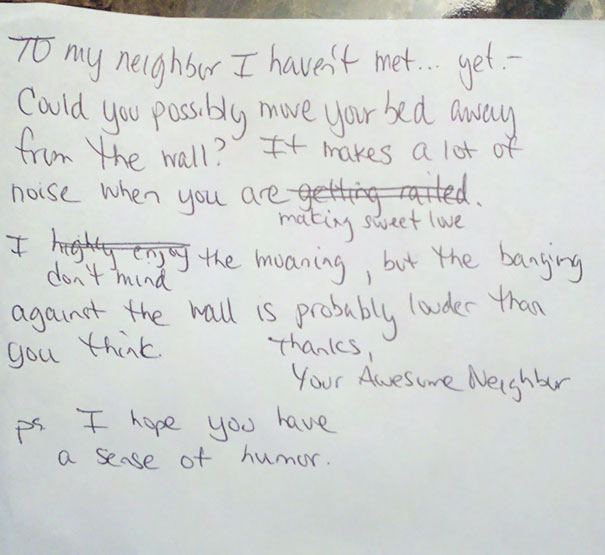 To my neighbor I haven't met... yet.-
Could you possibly move your bed away
from the wall? It makes a lot of
noise when you are getting railed.
making sweet love
I highly enjoy the moaning, but the banging
don't mind
against the wall is probably louder than
you think.
Thanks,
Your Awesome Neighbor
ps. I hope you have
a sense of humor.